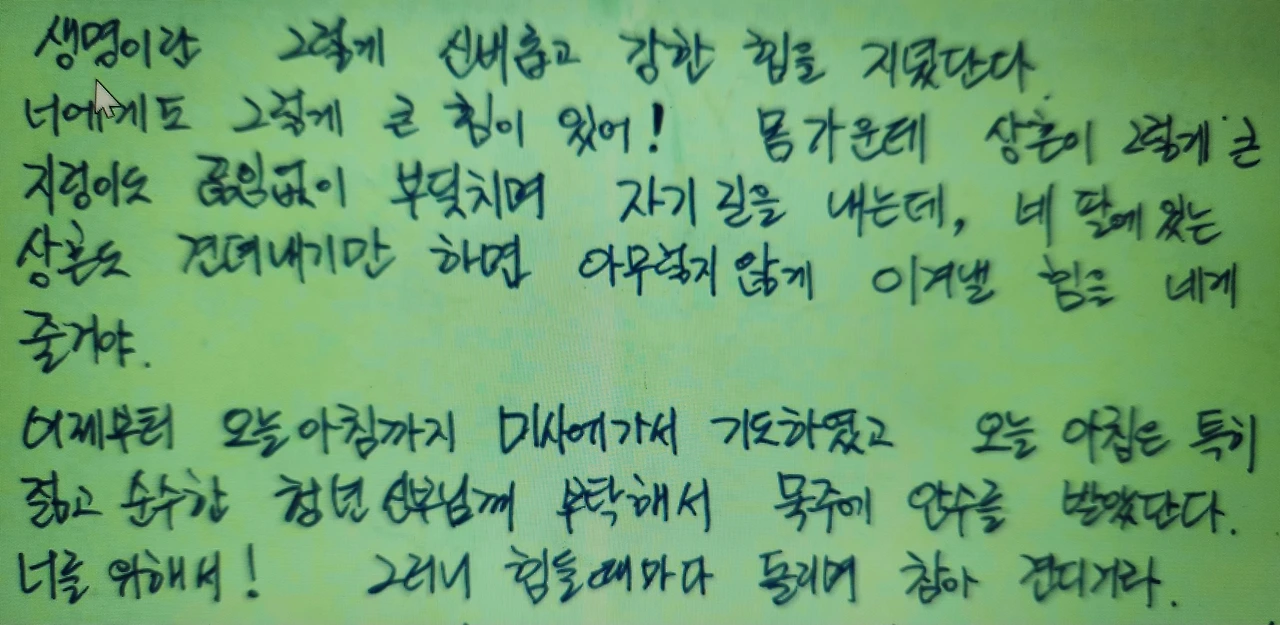 생명이란 그렇게 신비롭고 강한 힘을 지녔단다.
너에게도 그렇게 큰 힘이 있어! 몸 가운데 상흔이 그렇게 큰
지렁이도 끊임없이 부딪치며 자기 길을 내는데, 네 팔에 있는
상흔도 견뎌내기만 하면 아무렇지 않게 이겨낼 힘을 네게
줄거야.
어제부터 오늘 아침까지 미사에 가서 기도하였고 오늘 아침은 특히
젊고 순수한 청년 신부님께 부탁해서 묵주에 안수를 받았단다.
너를 위해서! 그러니 힘들 때마다 돌리며 참아 견디거라.